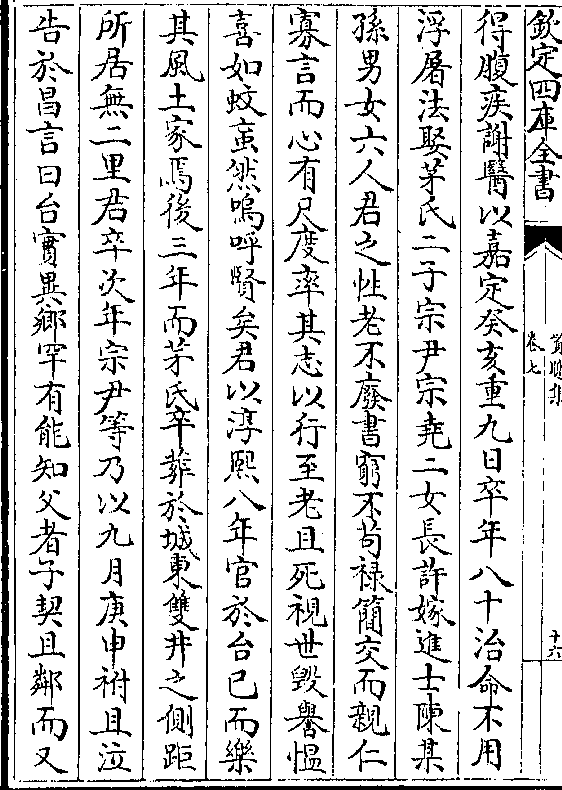 欽定四庫全書
卷七
十六
得腹疾謝醫以嘉定癸亥重九日卒年八十治命不用
浮屠法娶茅氏二子宗尹宗堯二女長許嫁進士陳某
孫男女六人君之性老不廢書窮不苟祿簡交而親仁
寡言而心有尺度率其志以行至老且死視世毀譽慍
喜如蚊䖟然嗚呼賢矣君以淳熙八年官於台已而樂
其風土家焉後三年而茅氏卒葬於城東雙井之側距
所居無二里君卒次年宗尹等乃以九月庚申祔且泣
告於昌言曰台實異鄉罕有能知父者子契且鄰而又